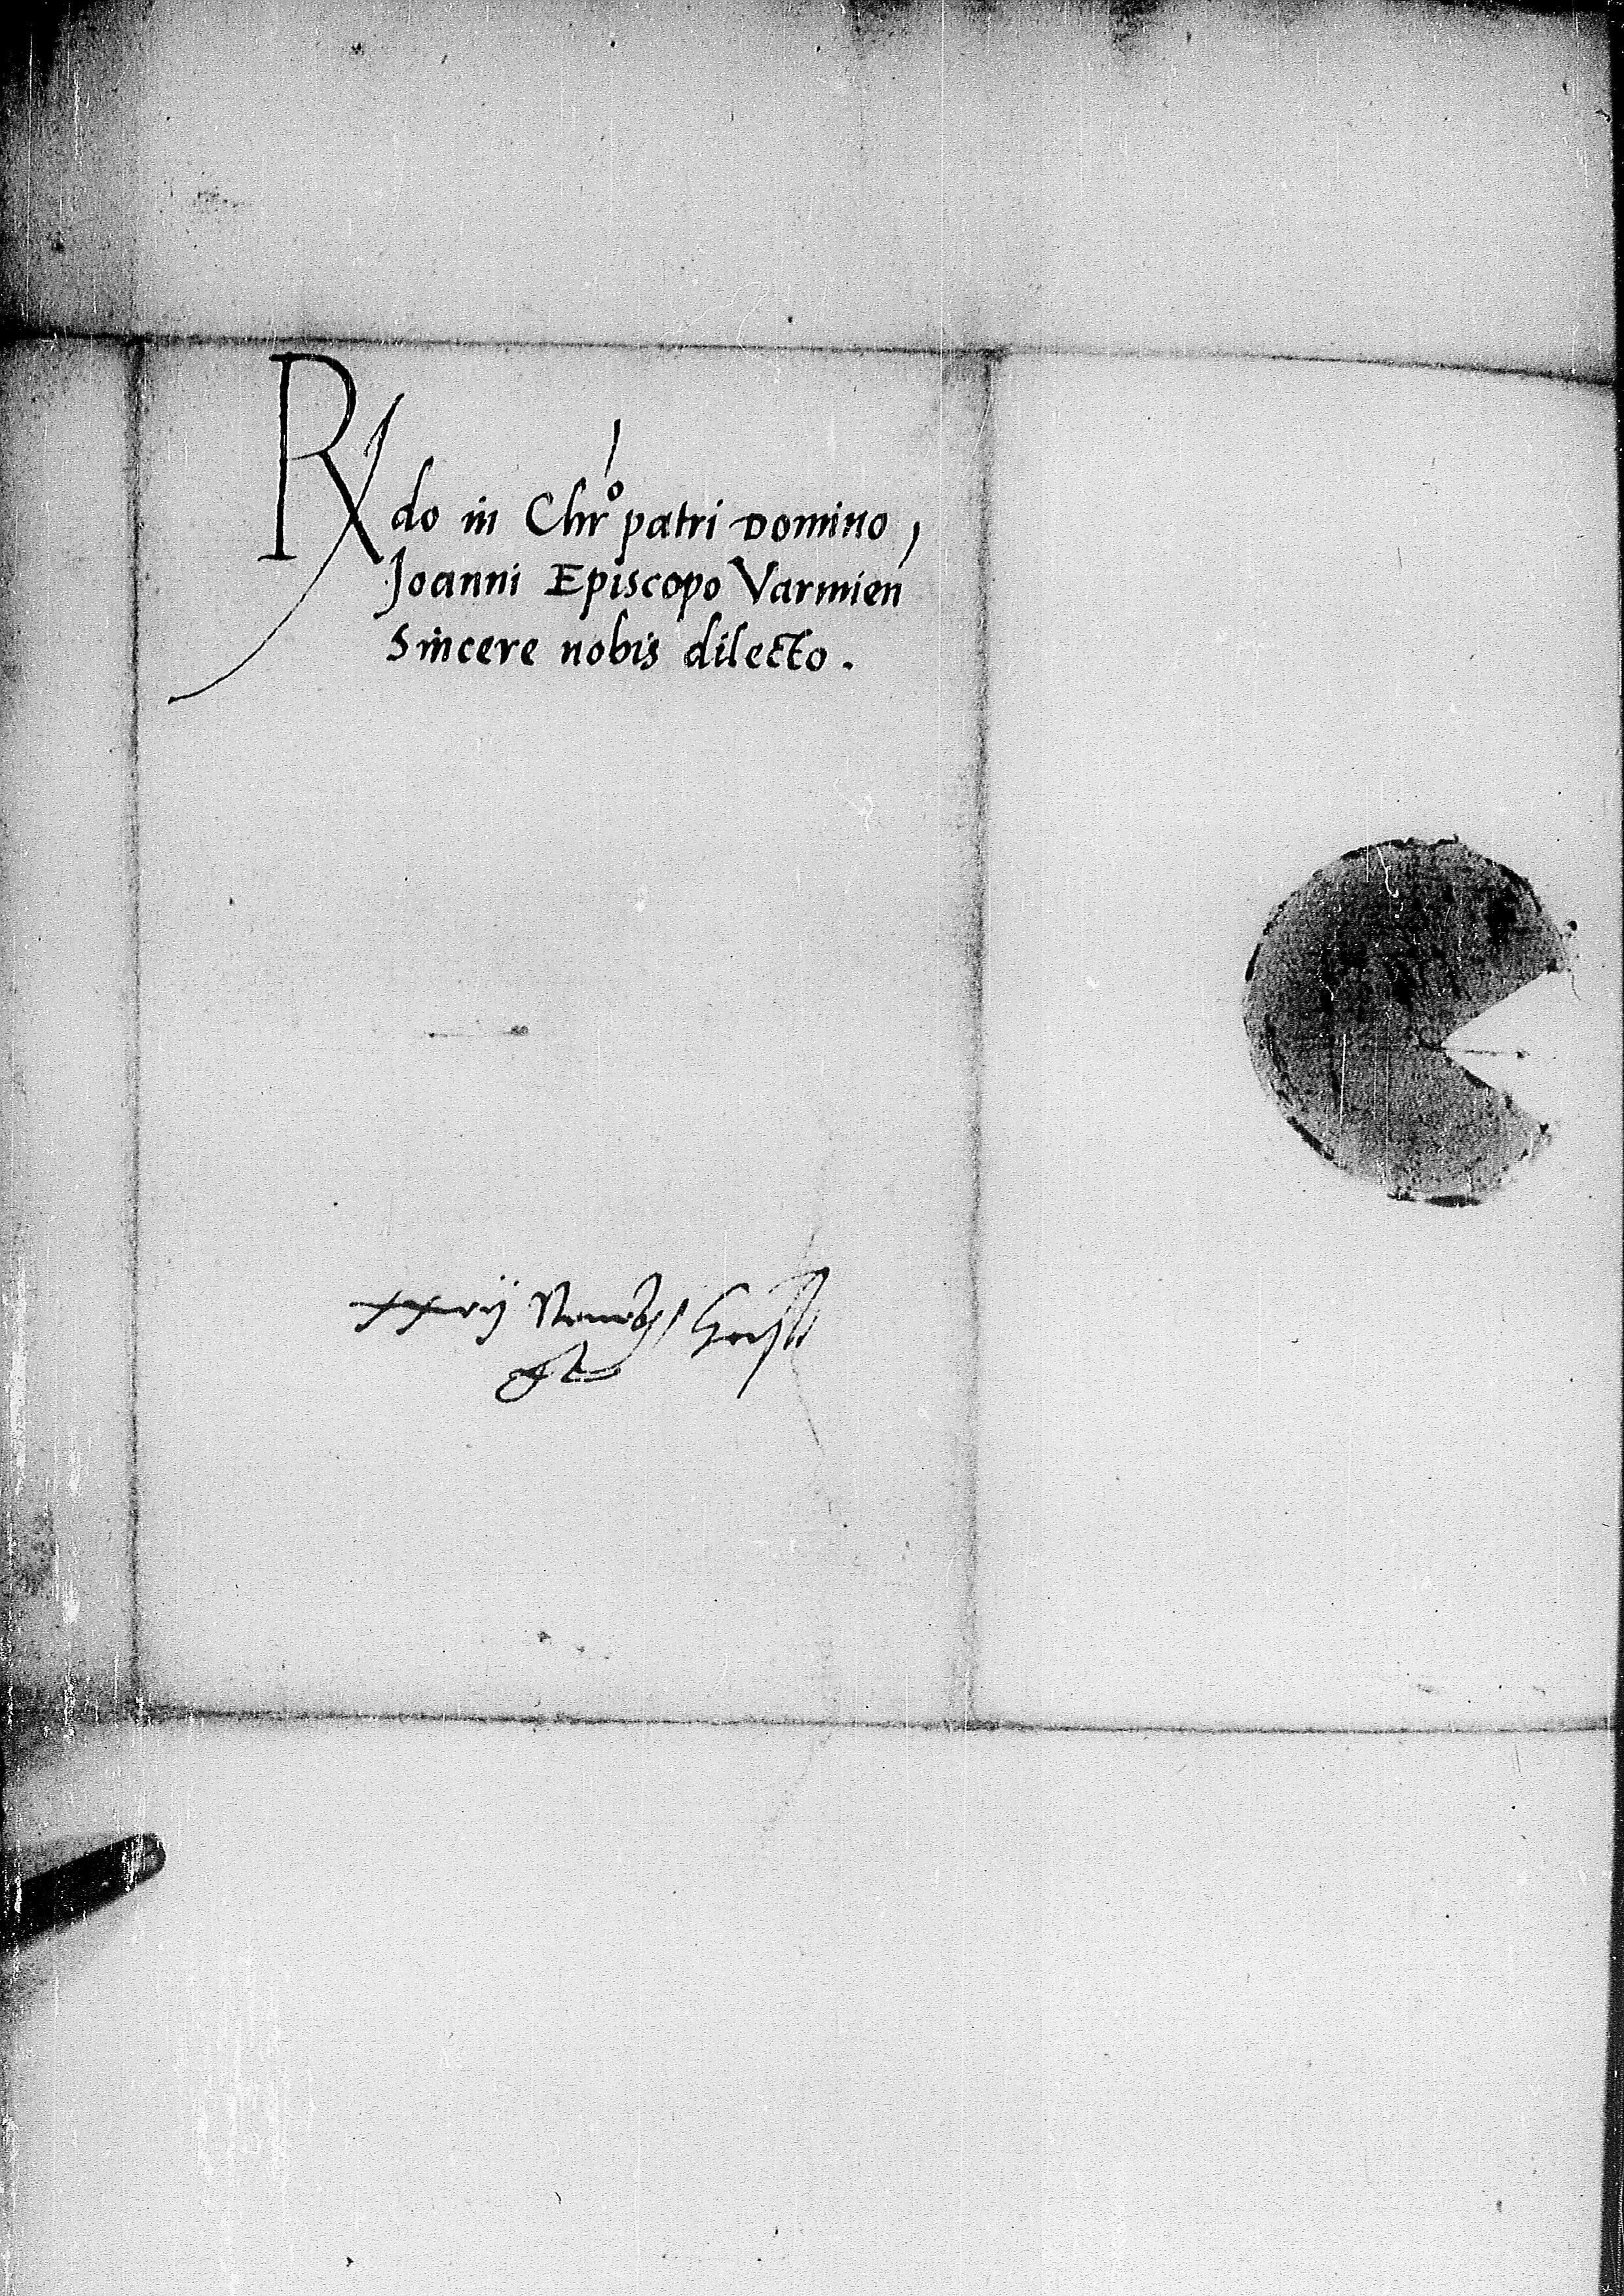 Rdo in Chro patri Domino
Joanni Episcopo Varmien
Sincere nobis dilecto.
xxvij Novembris